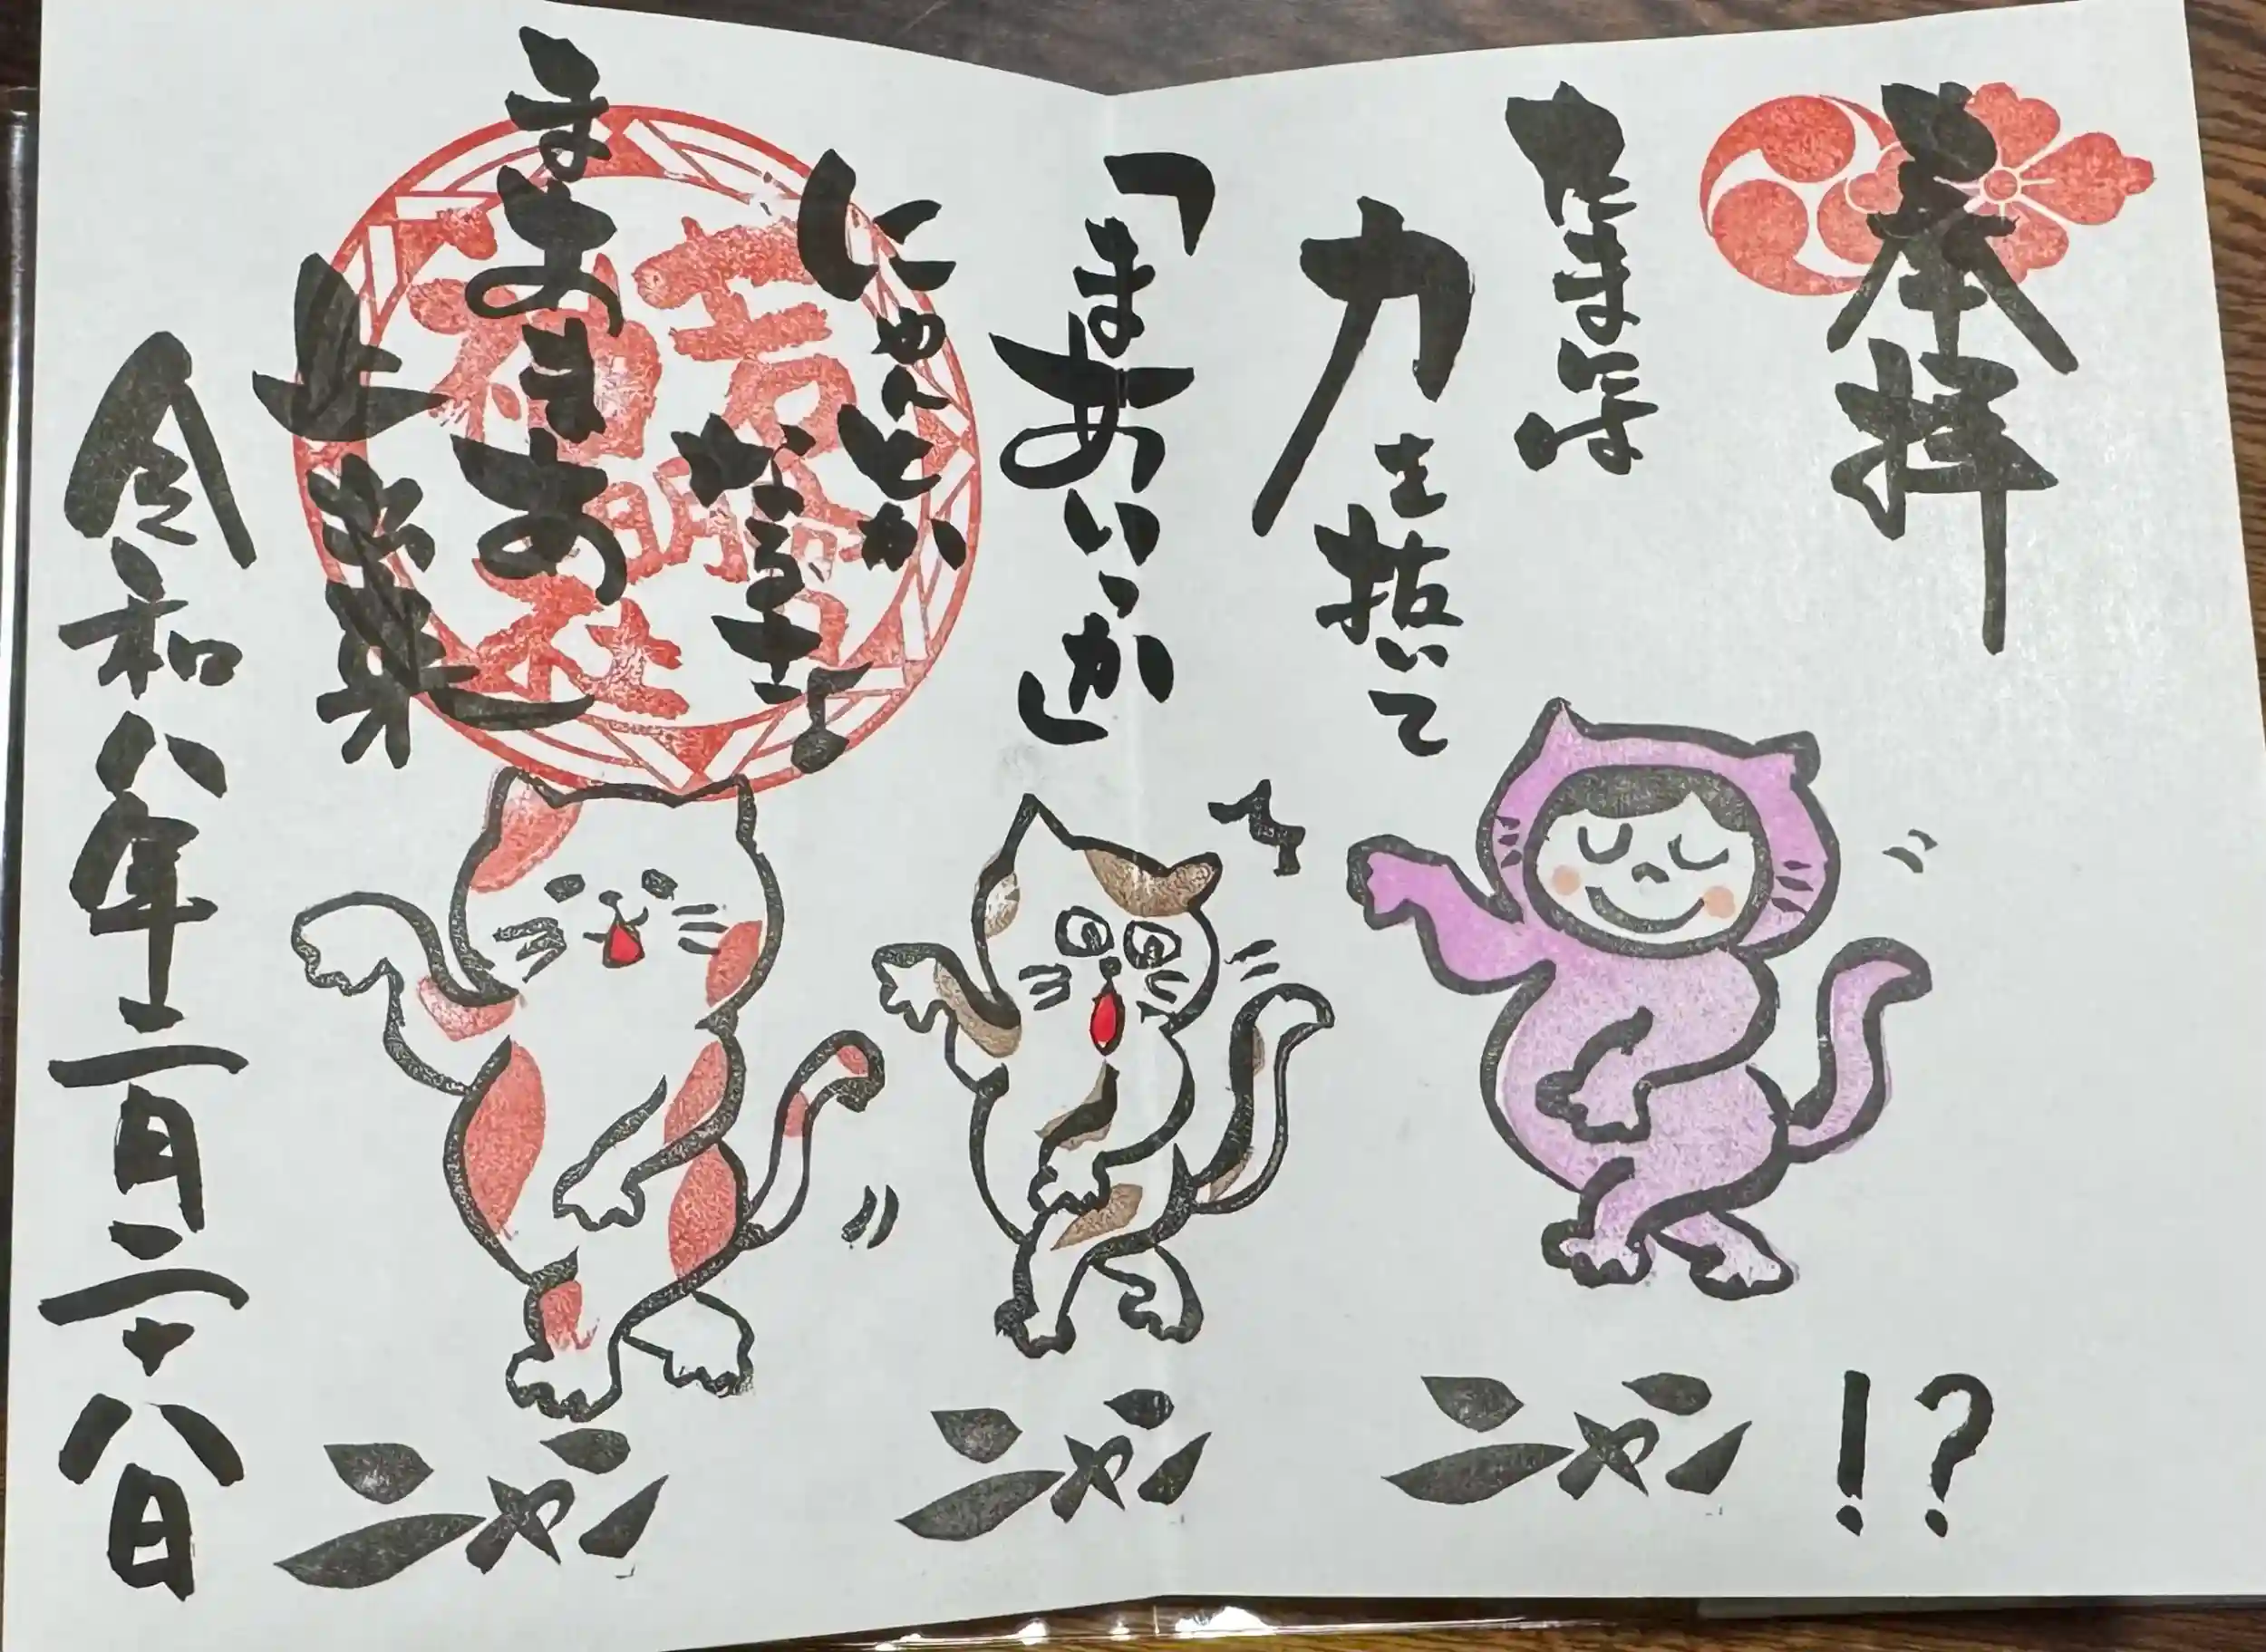 奉拝
たまには
力を抜いて
「まあいっか」
にゃんとか
なるさ♪
まあまあ
上出来
令和八年二月二十八日
ニャン ニャン ニャン!?